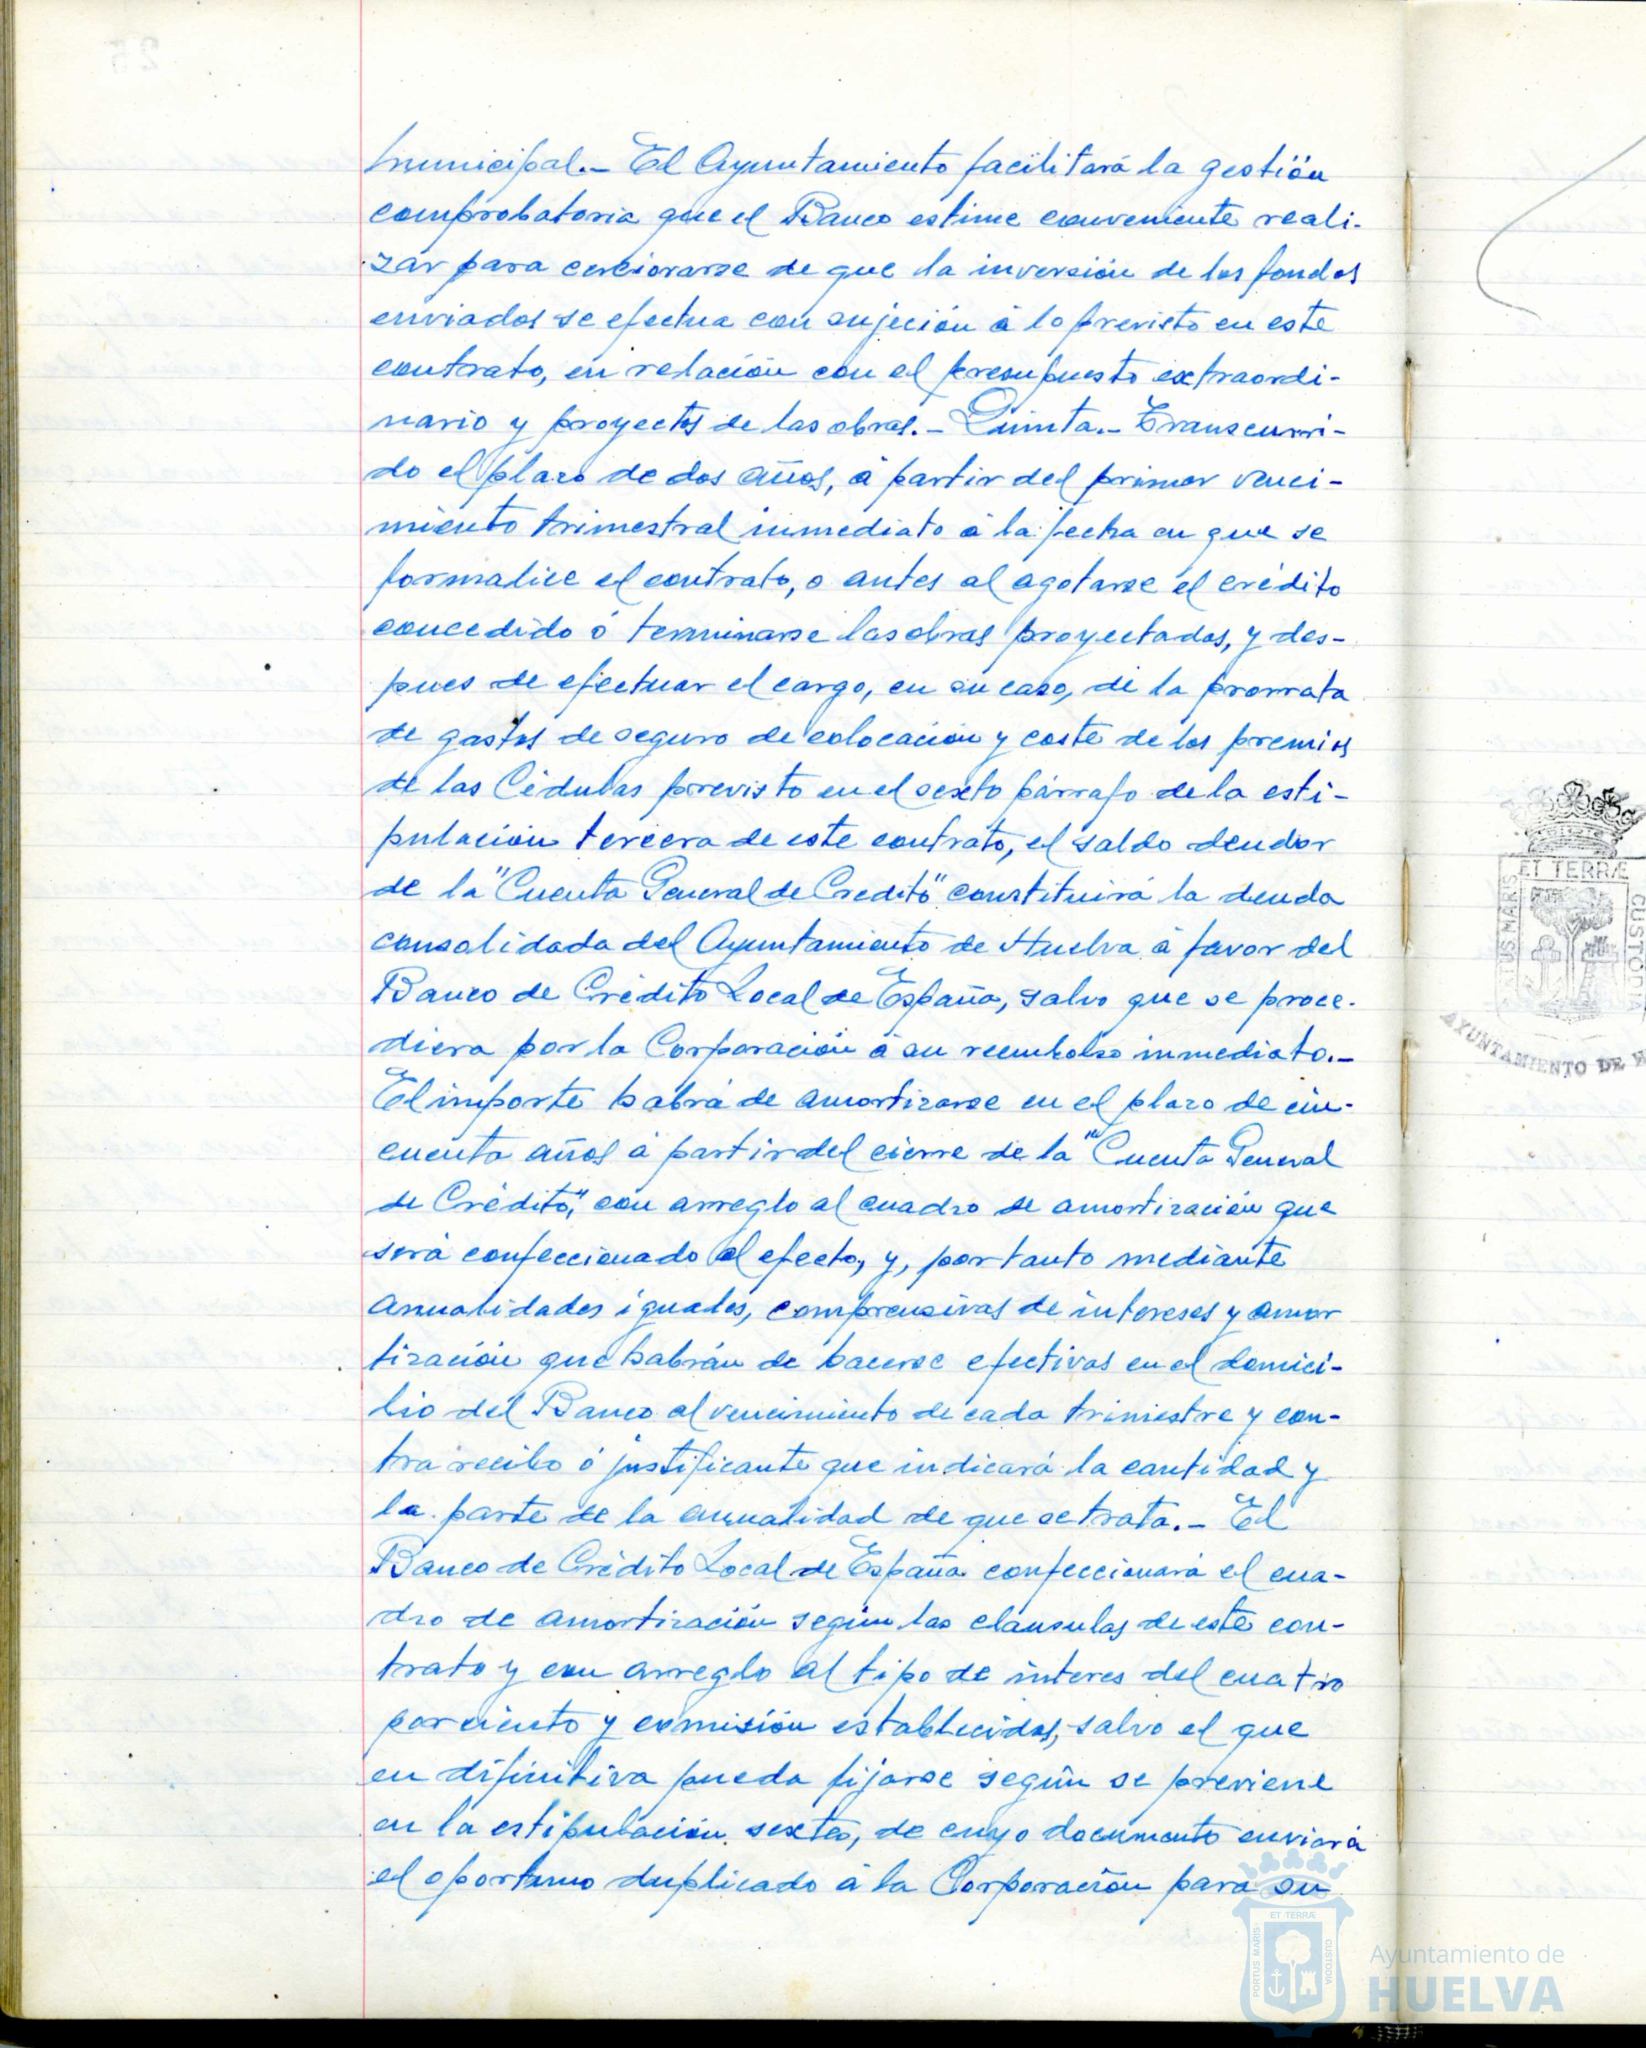 municipal.- El Ayuntamiento facilitará la gestión
comprobatoria que el Banco estime conveniente reali-
zar para cerciorarse de que la inversión de los fondos
enviados se efectua con sujeción á lo previsto en este
contrato, en relación con el presupuesto extraordi-
nario y proyectos de las obras.- Quinta.- Transcurri-
do el plazo de dos años, á partir del primer venci-
miento trimestral inmediato á la fecha en que se
formalice el contrato, o antes al agotarse el crédito
concedido ó terminarse las obras proyectadas, y des-
pues de efectuar el cargo, en su caso, de la prorrata
de gastos de seguro de colocación y coste de los premios
de las Cédulas previsto en el sexto párrafo de la esti-
pulación tercera de este contrato, el saldo deudor
de la "Cuenta General de Credito" constituirá la deuda
consolidada del Ayuntamiento de Huelva á favor del
Banco de Crédito Local de España, salvo que se proce-
diera por la Corporación á su reembolso inmediato.-
El importe habrá de amortizarse en el plazo de cin-
cuenta años á partir del cierre de la "Cuenta General
de Crédito", con arreglo al cuadro de amortización que
será confeccionado al efecto, y, por tanto mediante
anualidades iguales, comprensivas de intereses y amor
tización que habrán de hacerse efectivas en el domici-
lio del Banco al vencimiento de cada trimestre y con-
tra recibo ó justificante que indicará la cantidad y
la parte de la anualidad de que se trata.- El
Banco de Crédito Local de España confeccionará el cua-
dro de amortización según las clausulas de este con-
trato y con arreglo al tipo de interes del cuatro
por ciento y comisión establecidos, salvo el que
en difinitiva pueda fijarse según se previene
en la estipulación sexta, de cuyo documento enviará
el oportuno duplicado á la Corporación para su
ET TERRÆ
CUSTODIA
AYUNTAMIENTO DE
PORTUS MARIS
ET TERRÆ
CUSTODIA
Ayuntamiento de
HUELVA